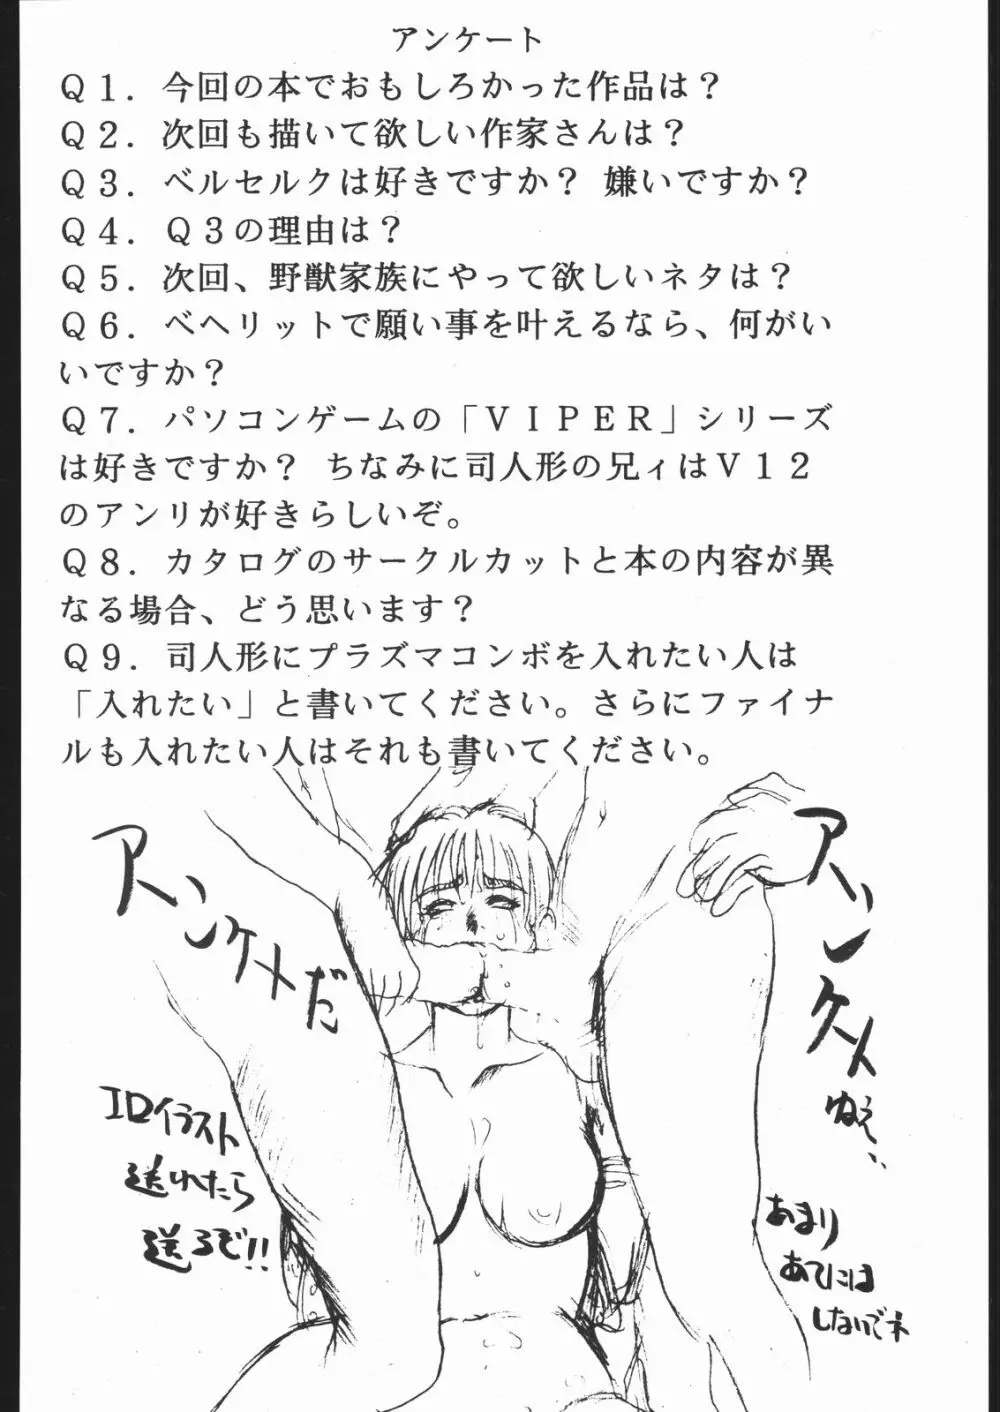 アンケート
Q1．今回の本でおもしろかった作品は？
Q2．次回も描いて欲しい作家さんは？
Q3．ベルセルクは好きですか？ 嫌いですか？
Q4．Q3の理由は？
Q5．次回、野獣家族にやって欲しいネタは？
Q6．ベヘリットで願い事を叶えるなら、何がい
いですか？
Q7．パソコンゲームの「VIPER」シリーズ
は好きですか？ ちなみに司人形の兄ィはV12
のアンリが好きらしいぞ。
Q8．カタログのサークルカットと本の内容が異
なる場合、どう思います？
Q9．司人形にプラズマコンボを入れたい人は
「入れたい」と書いてください。さらにファイナ
ルも入れたい人はそれも書いてください。
アンケメだ
エロイラスト
送れたら
送るぞ!!
アンケメ
ねぇ
あまり
あてには
しないでネ